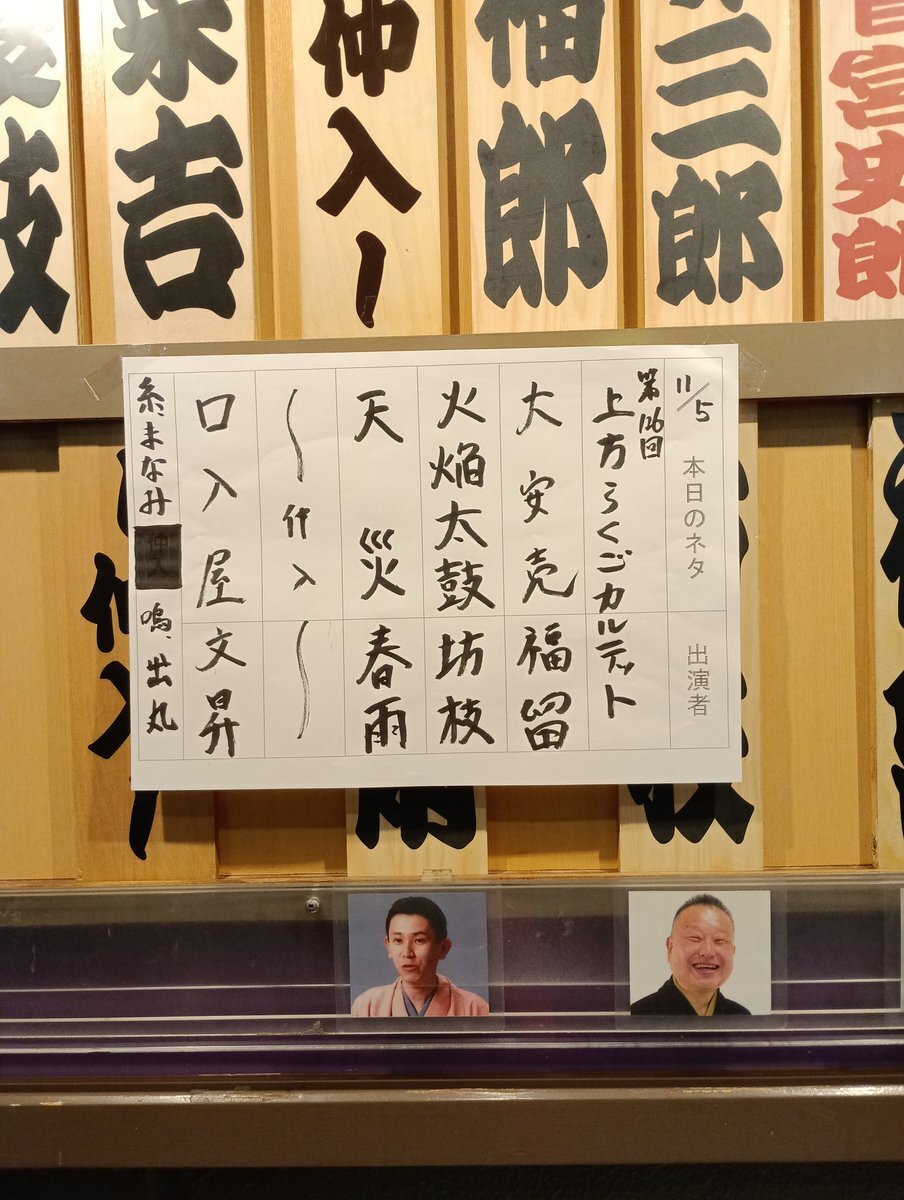 来吉
仲入ー
福郎
三郎
史郎
11/5 本日のネタ 出演者
第126回
上方らくごカルテット
大安売 福留
火焔太鼓 坊枝
天災 春雨
〜仲入〜
口入屋 文昇
糸、まなみ 仲入 鳴、出丸